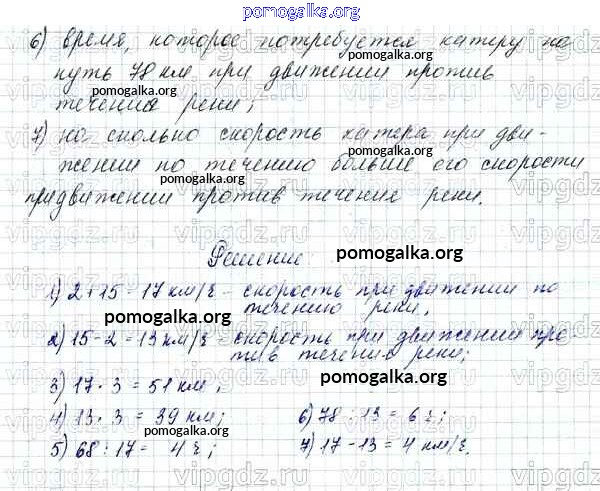 pomogalka.org
6) время, которое потребуется катеру на
путь 78 км при движении против
течения реки;
pomogalka.org
pomogalka.org
7) на сколько скорость катера при дви-
жении по течению больше его скорости
при движении против течения реки.
pomogalka.org
Решение:
pomogalka.org
1) 2+15=17 км/ч - скорость при движении по
течению реки,
pomogalka.org
2) 15-2=13 км/ч - скорость при движении про-
тив течения реки;
3) 17·3=51 км,
pomogalka.org
4) 13·3=39 км; 6) 78:13=6 ч;
pomogalka.org
5) 68:17= 4 ч; 7) 17-13=4 км/ч.
vipgdz.ru